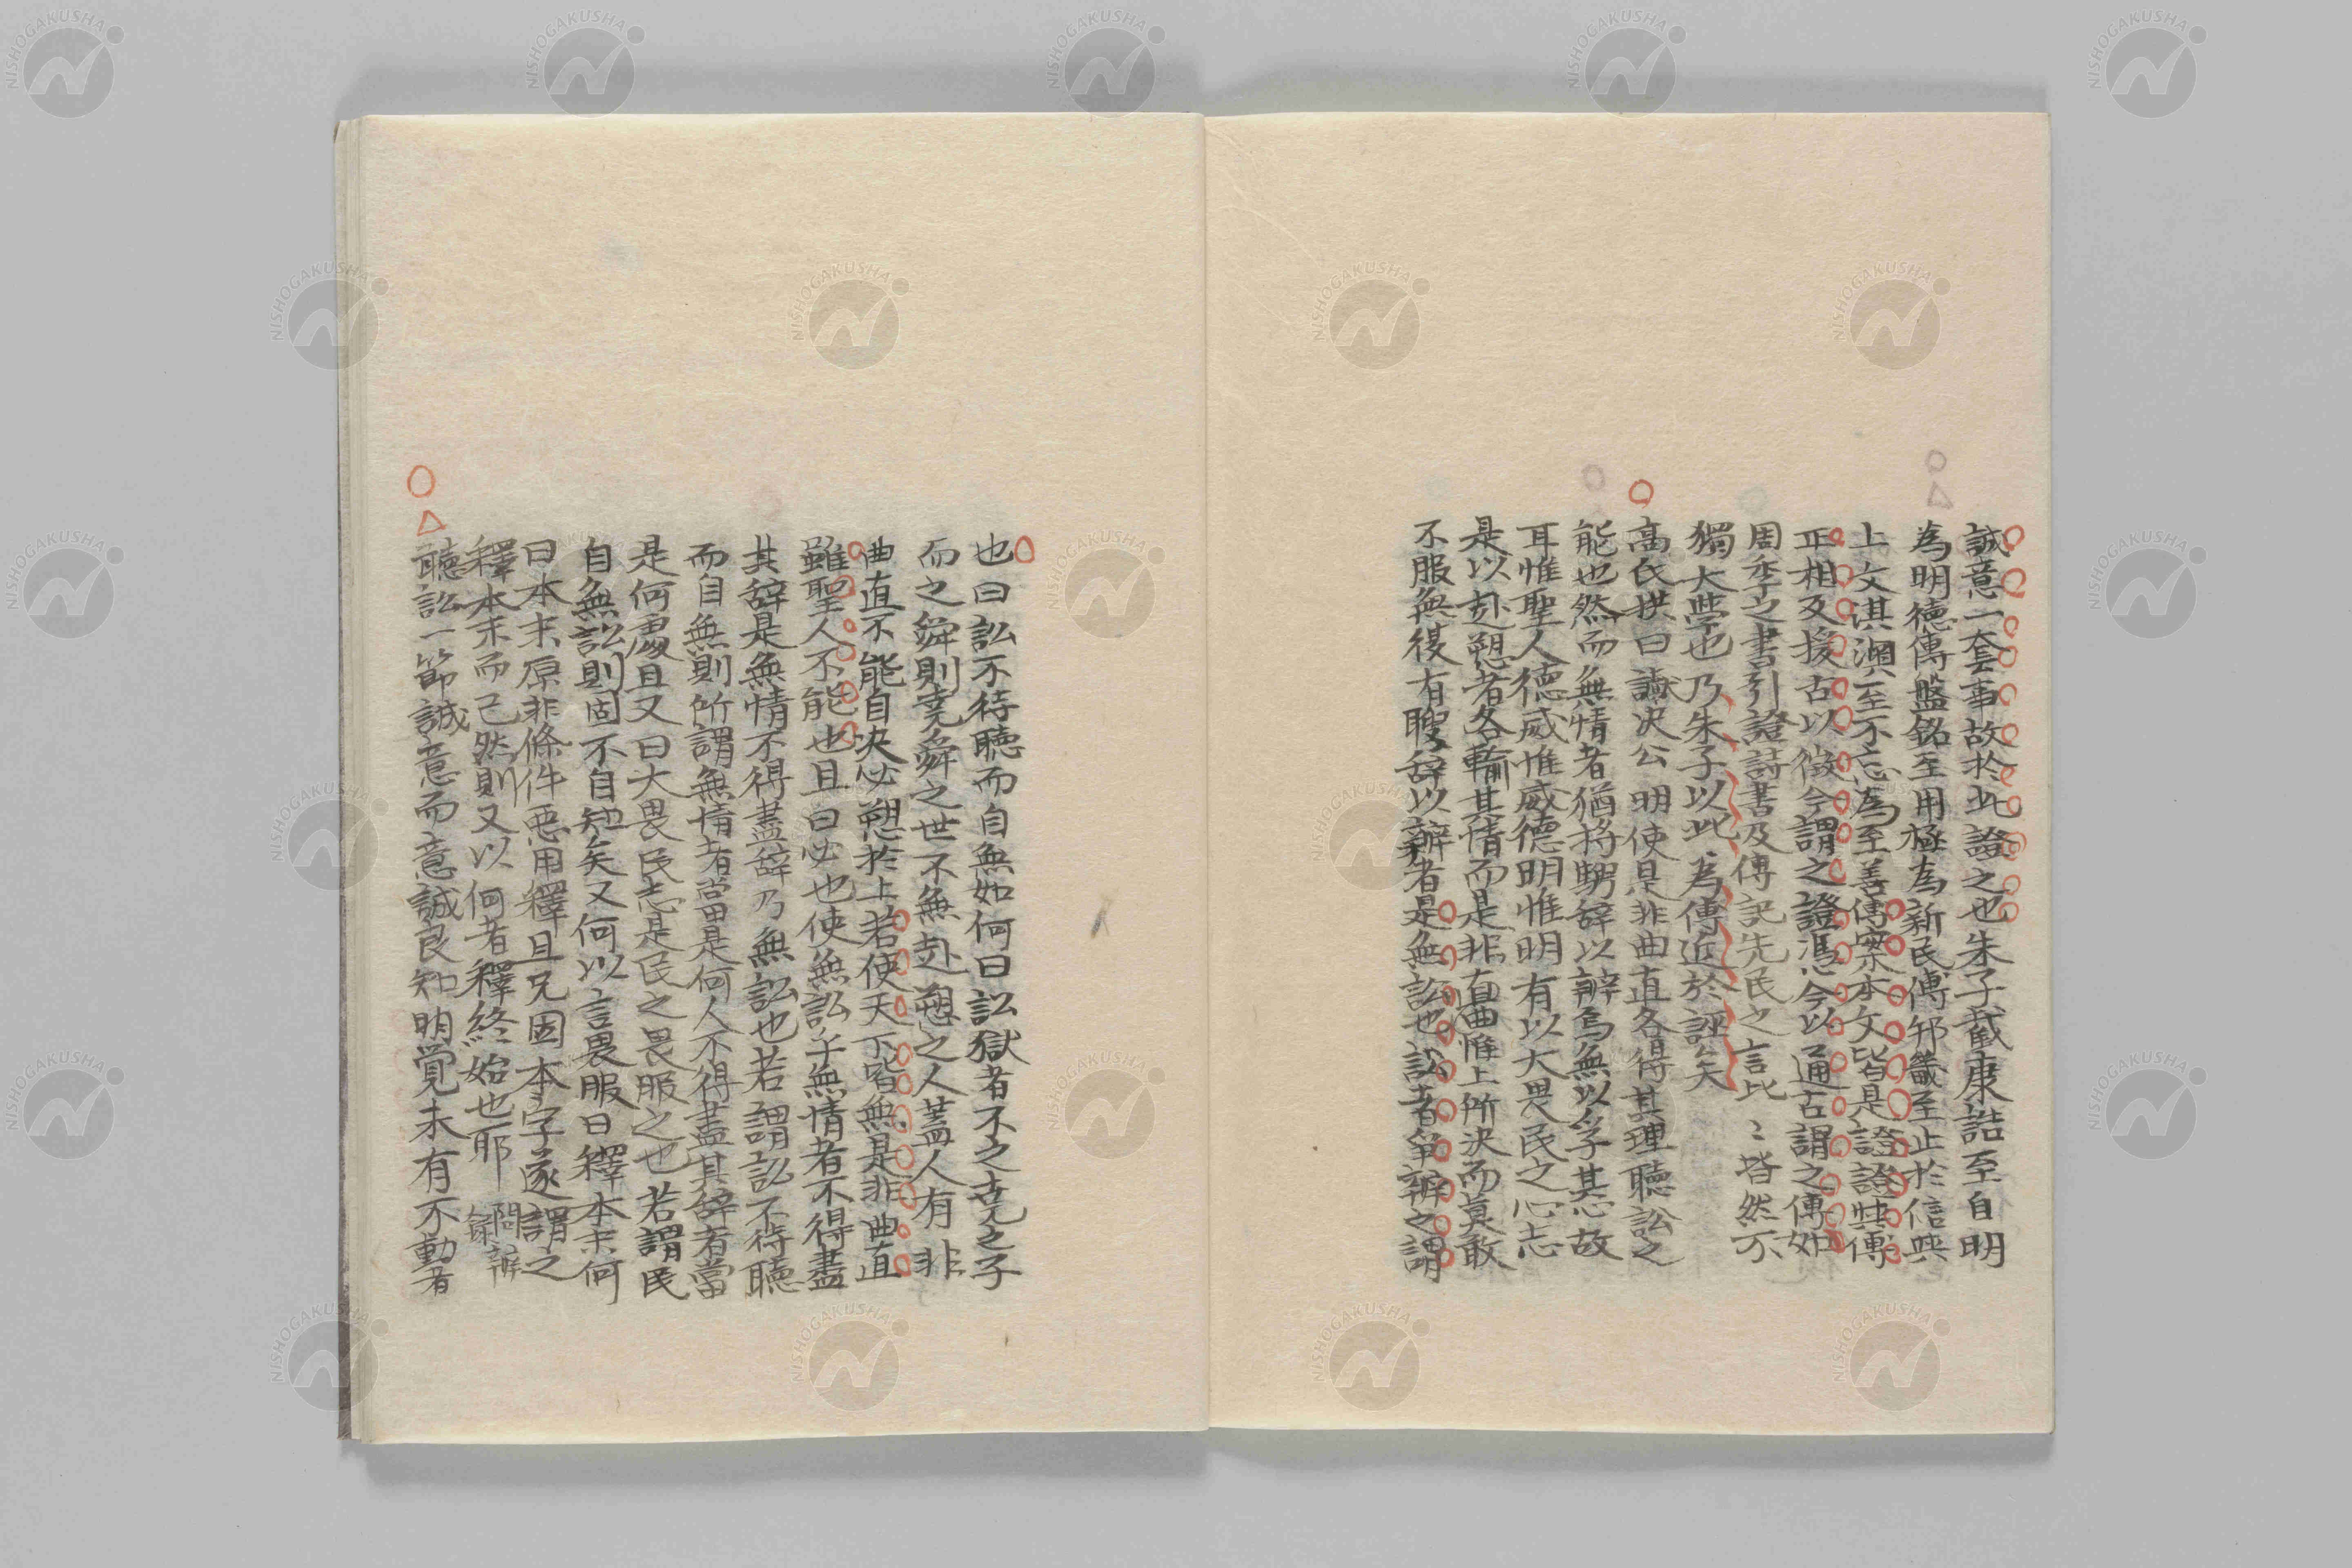 誠意一套事故於此證之也朱子截康誥至自明
為明德傳盤銘至用極為新民傳邦畿至止於信與
上文淇澳至不忘為至善傳案本文皆是證證與傳
正相反援古以徵今謂之證馮今以通古謂之傳如
周季之書引證詩書及傳記先民之言比〻皆然不
獨大學也乃朱子以此為傳近於誣矣
高氏拱曰誠決公明使是非曲直各得其理聽訟之
能也然而無情者猶将騁辞以辨焉無以孚其志故
耳惟聖人德威惟威德明惟明有以大畏民之心志
是以赴愬者各輸其情而是非直曲惟上所決而莫敢
不服無復有騁辞以辨者是無訟也訟者爭辨之謂
也曰訟不待聽而自無如何曰訟獄者不之堯之子
而之舜則堯舜之世不無赴愬之人蓋人有是非
曲直不能自決必愬於上若使天下皆無是非曲直
雖聖人不能也且曰必也使無訟乎無情者不得盡
其辞是無情不得盡辞乃無訟也若謂訟不待聽
而自無則所謂無情者當是何人不得盡其辞者當
是何處且又曰大畏民志是民之畏服之也若謂民
自無訟則固不自知矣又何以言畏服曰釋本末何
曰本末原非條件惡用釋且況因本字遂謂之
釋本末而已然則又以何者釋終始也耶 問辨録
聽訟一節誠意而意誠良知明覚未有不動者
NISHOGAKUSHA